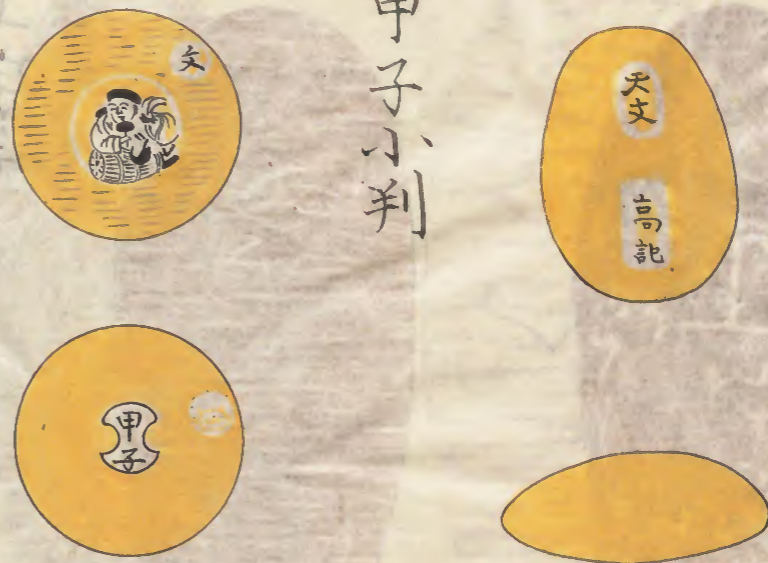 天文
高記
甲子小判
文
甲子